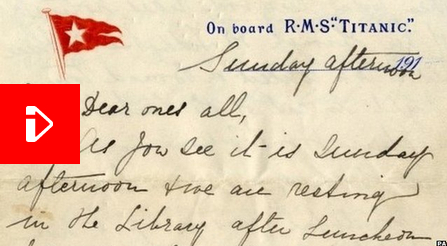 On board R·M·S "TITANIC."
191
Sunday afternoon
Dear ones all,
As you see it is Sunday
afternoon & we are resting
in the Library after Luncheon